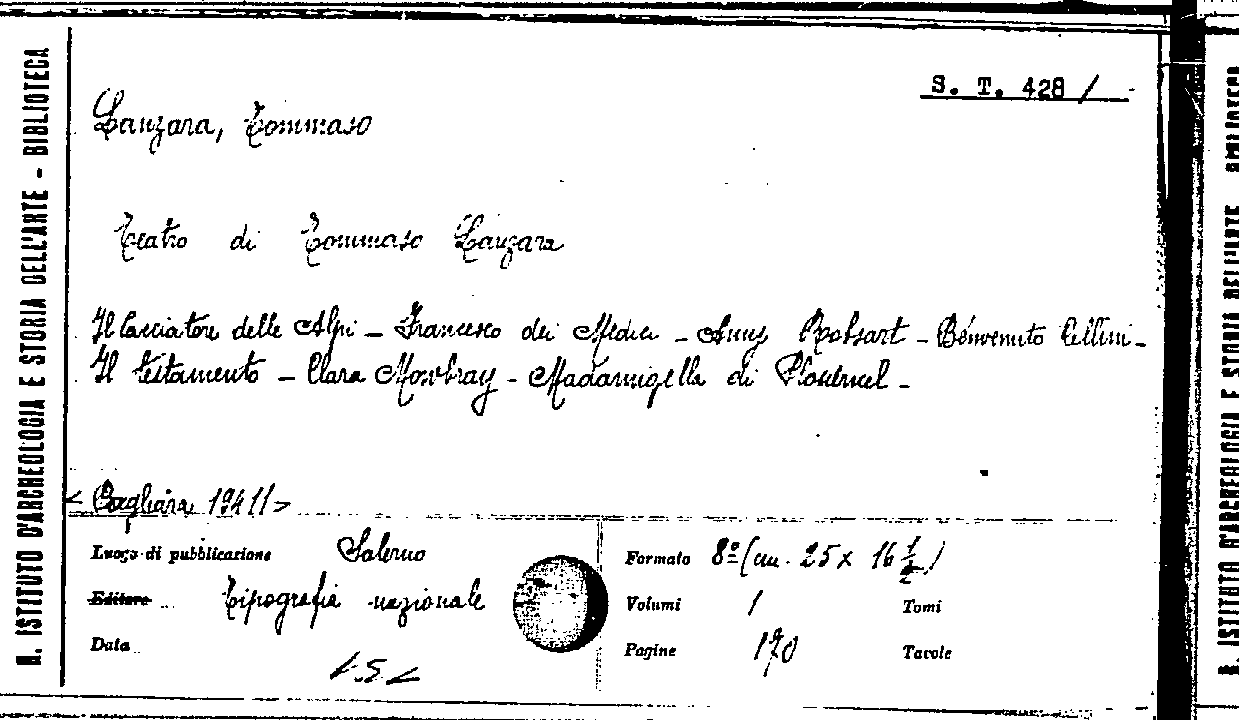 R. ISTITUTO D'ARCHEOLOGIA E STORIA DELL'ARTE - BIBLIOTECA
S. T. 428 /
Lanzara, Tommaso
Teatro di Tommaso Lanzara
Il Cacciatore delle Alpi - Francesco dei Medici - Anny Robsart - Benvenuto Cellini -
Il testamento - Clara Mowbray - Madamigella di
< Cagliara 1941 >
Luogo di pubblicazione Salerno
Editore Tipografia nazionale
Data
Formato 8º (cm. 25 x 16 1/2)
Volumi 1 Tomi
Pagine 170 Tavole